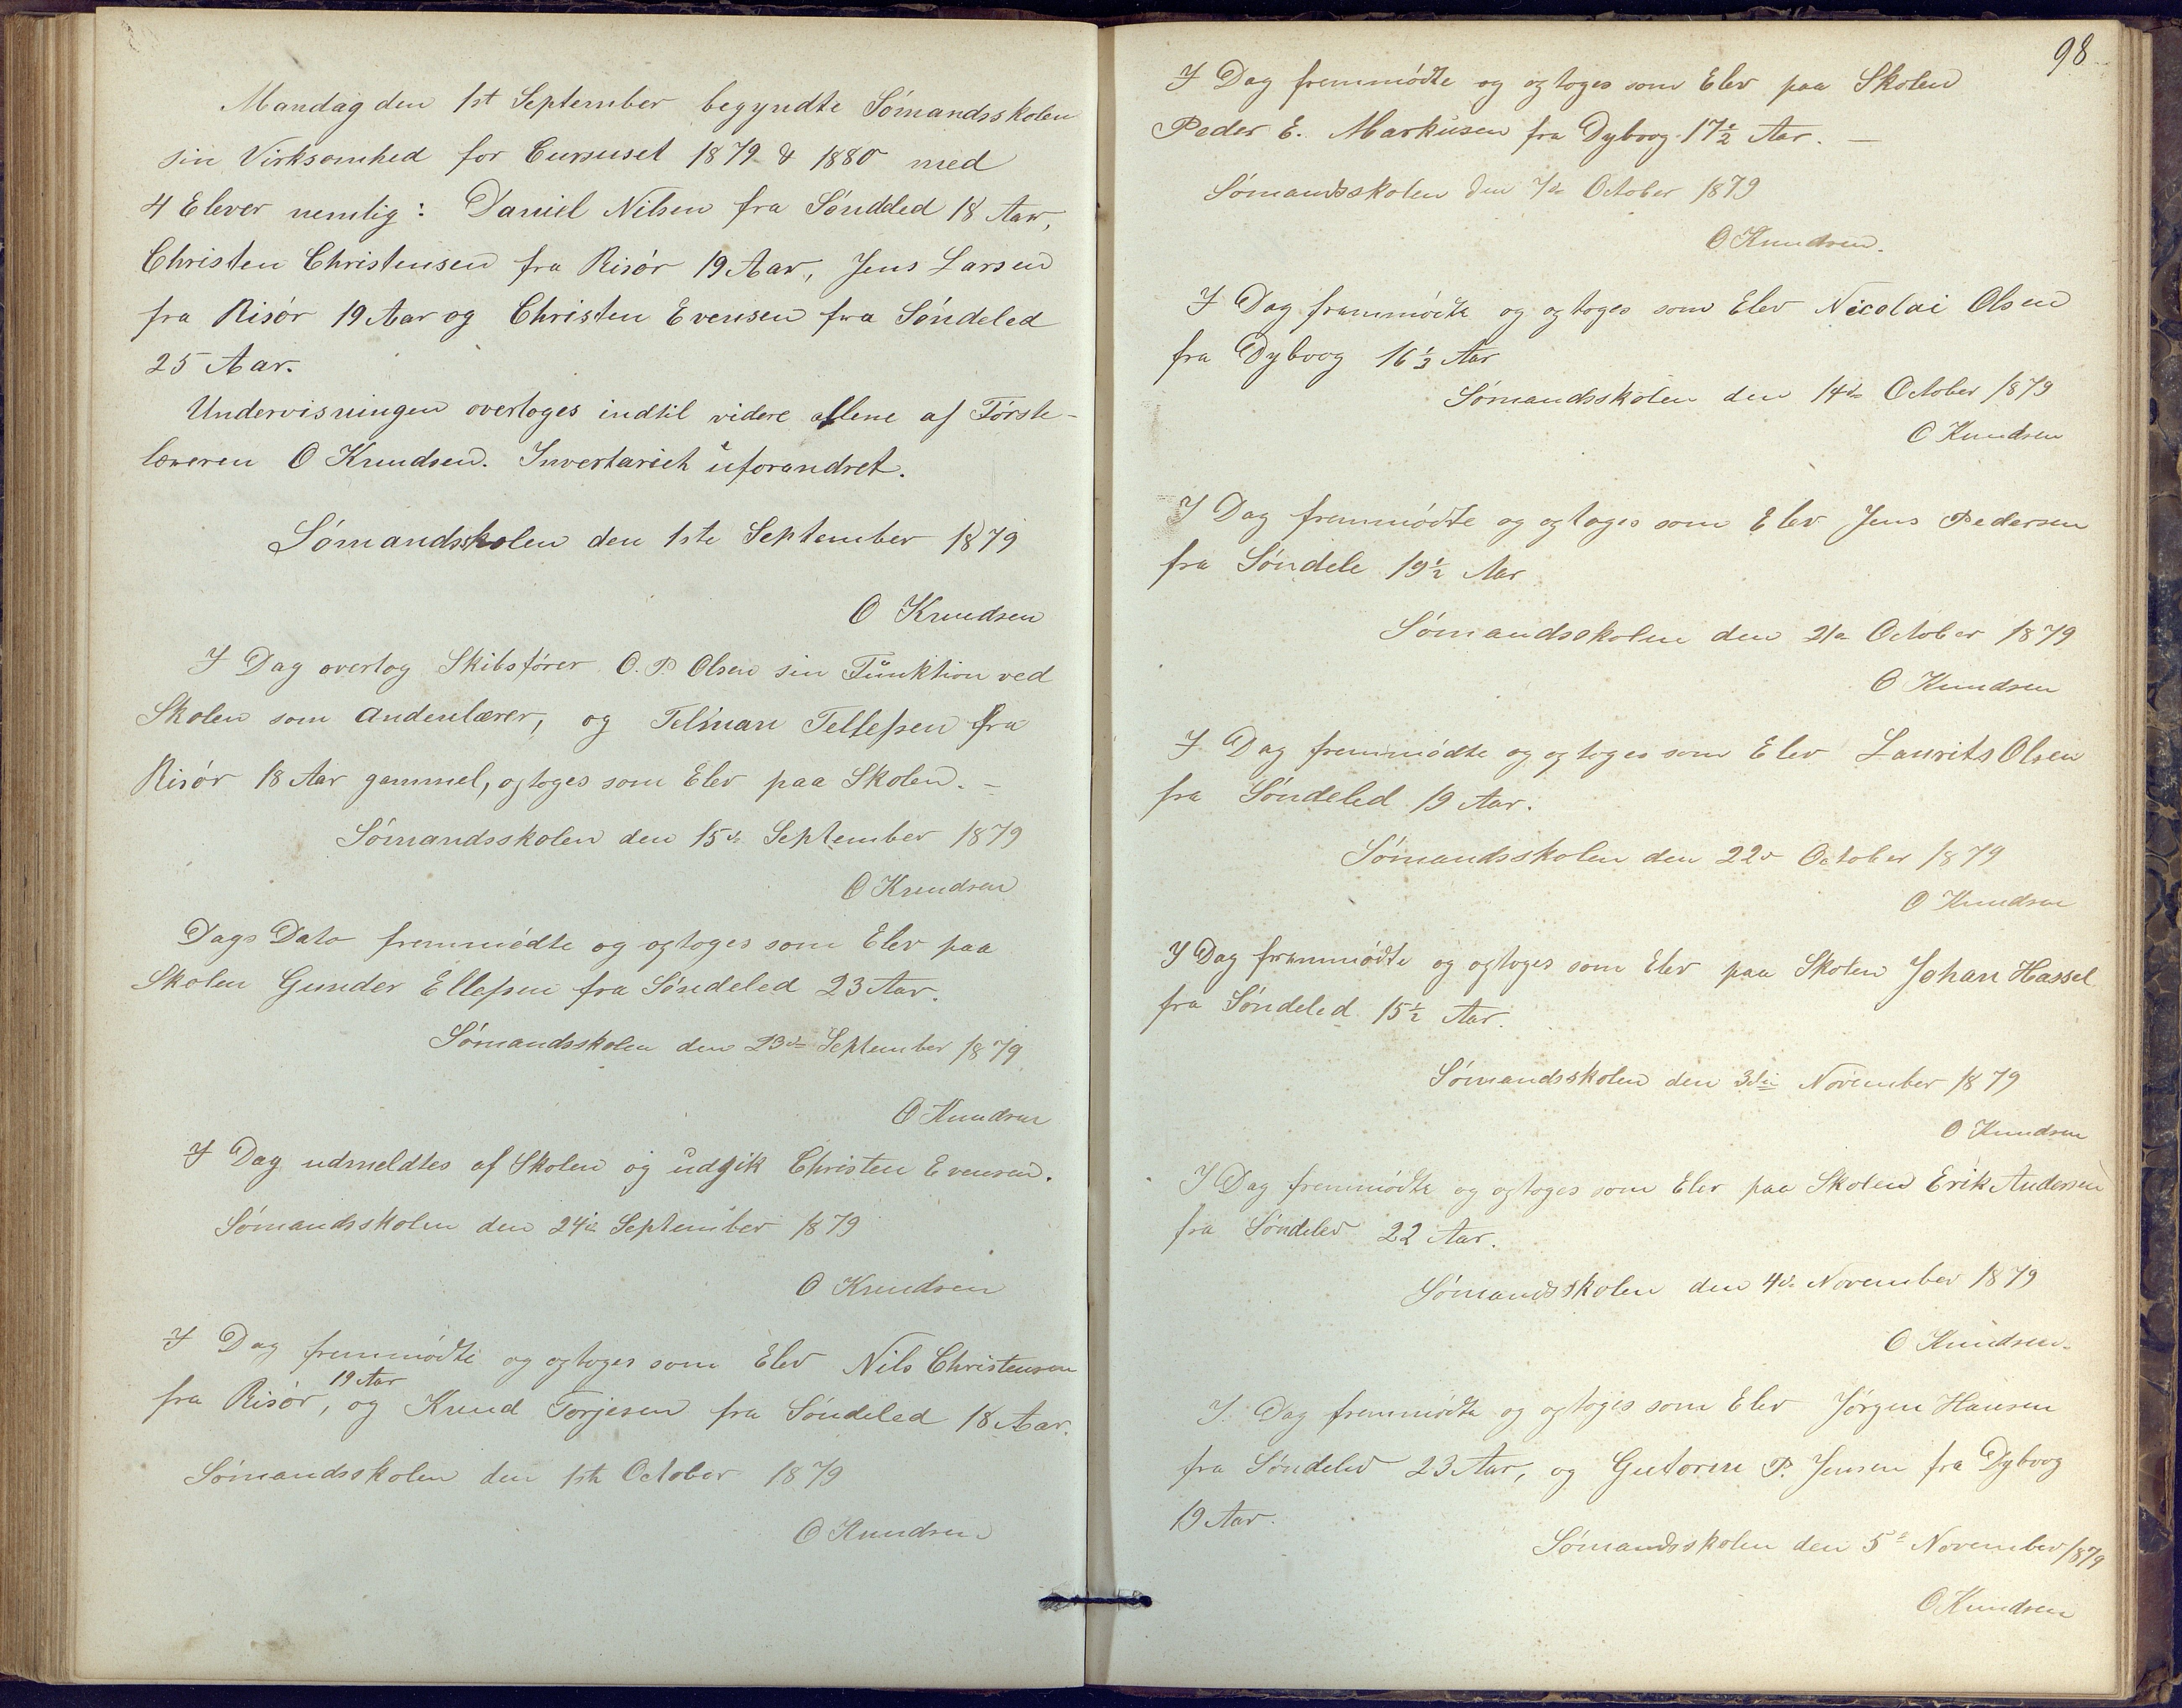 Mandag den 1st September begyndte Sömandsskolen
sin Virksomhed for Cursuset 1879 & 1880 med
4 Elever nemlig: Daniel Nilsen fra Sönddled 18 Aar,
Christen Christensen fra Risör 19 Aar, Jens Larsen
fra Risör 19 Aar og Christen Evensen fra Söndeled
25 Aar.
Undervisningen overtoges indtil videre allene af Förste-
læreren O Knudsen. Invertariet uforandret.
Sömandsskolen den 1ste September 1879
O Knudsen
I Dag overtog Skibsförer O. P. Olsen sin Funktion ved
Skolen som Andenlærer, og Telman Tellefsen fra
Risör 18 Aar gammel, optoges som Elev paa Skolen. –
Sömandsskolen den 15de September 1879
O Knudsen
Dags Dato fremmödte og optoges som Elev paa
Skolen Gunder Ellefsen fra Söndeled 23 Aar.
Sömandsskolen den 23de September 1879
O Knudsen
I Dag udmeldtes af Skolen og udgik Christen Evensen.
Sömandsskolen den 24de September 1879
O Knudsen
I Dag fremmödte og optoges som Elev Nils Christensen
fra Risör 19 Aar, og Knud Torjesen fra Söndeled 18 Aar.
Sömandsskolen den 1ste October 1879
O Knudsen
98
I Dag fremmödte og optoges som Elev paa Skolen
Peder E. Markusen fra Dybvog 17½ Aar. –
Sömandsskolen den 7de October 1879
O Knudsen.
I Dag fremmödte og optoges som Elev Nicolai Olsen
fra Dybvog 16½ Aar
Sömandsskolen den 14de October 1879
O Knudsen
I Dag fremmödte og optoges som Elev Jens Pedersen
fra Söndele 19½ Aar
Sömandsskolen den 21de October 1879
O Knudsen
I Dag fremmödte og optoges som Elev Laurits Olsen
fra Söndeled 19 Aar.
Sömandsskolen den 22de October 1879
O Knudsen
I Dag fremmödte og optoges som Elev paa Skolen Johan Hassel
fra Söndeled 15½ Aar.
Sömandsskolen den 3die November 1879
O Knudsen
I Dag fremmödte og optoges som Elev paa Skolen Erik Andersen
fra Söndeled 22 Aar.
Sömandsskolen den 4de November 1879
O Knudsen.
I Dag fremmödte og optoges som Elev Jörgen Hansen
fra Söndeled 23 Aar, og Gutorm P. Jensen fra Dybvog
19 Aar.
Sömandsskolen den 5te November 1879
O Knudsen